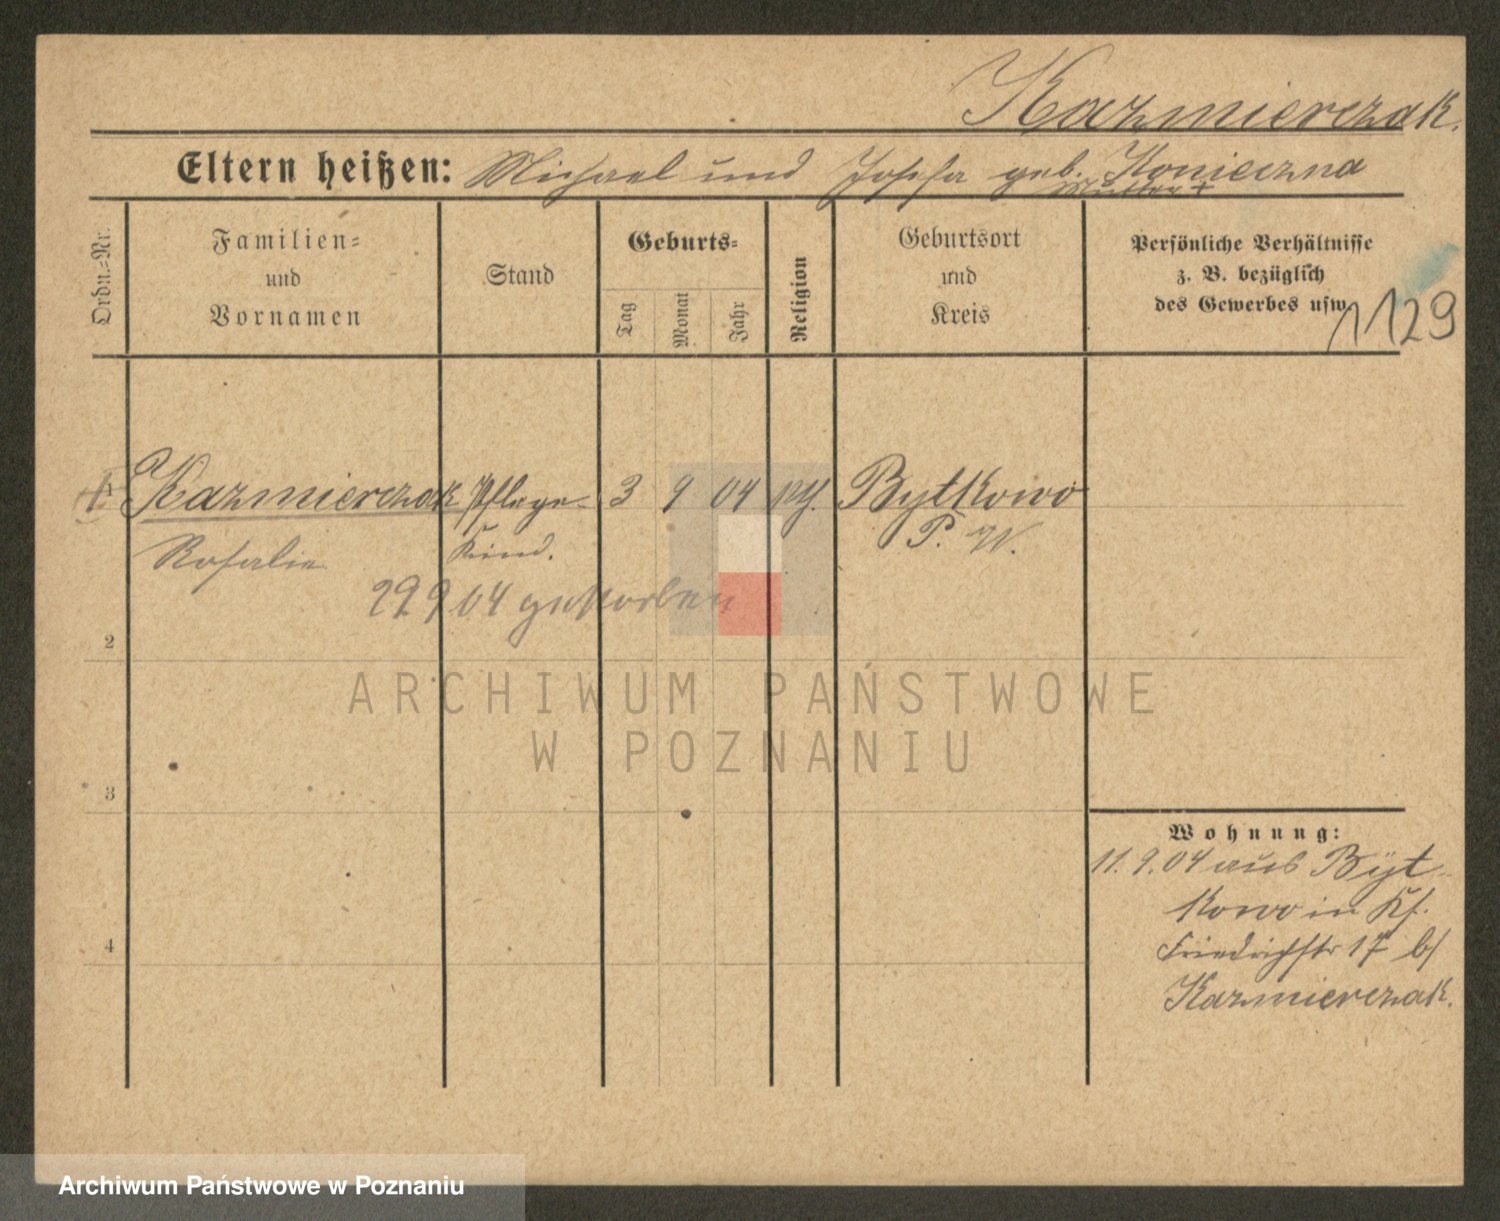 Kazmierczak.
Eltern heißen: Michael und Josefa geb. Konieczna
Mutter +
Ordn.=Nr.
Familien=
und
Vornamen
Stand
Geburts=
Tag
Monat
Jahr
Religion
Geburtsort
und
Kreis
Persönliche Verhältnisse
z. B. bezüglich
des Gewerbes usw.
1129
1 Kazmierczak Pflege- 3 9 04 Bytkowo
Rosalie Kind. P. W.
29 9 04 gestorben
2
ARCHIWUM PAŃSTWOWE
W POZNANIU
3
Wohnung:
11. 9. 04 aus Byt-
kowo in
Friedrichstr 17 b/
Kazmierczak.
4
Archiwum Państwowe w Poznaniu